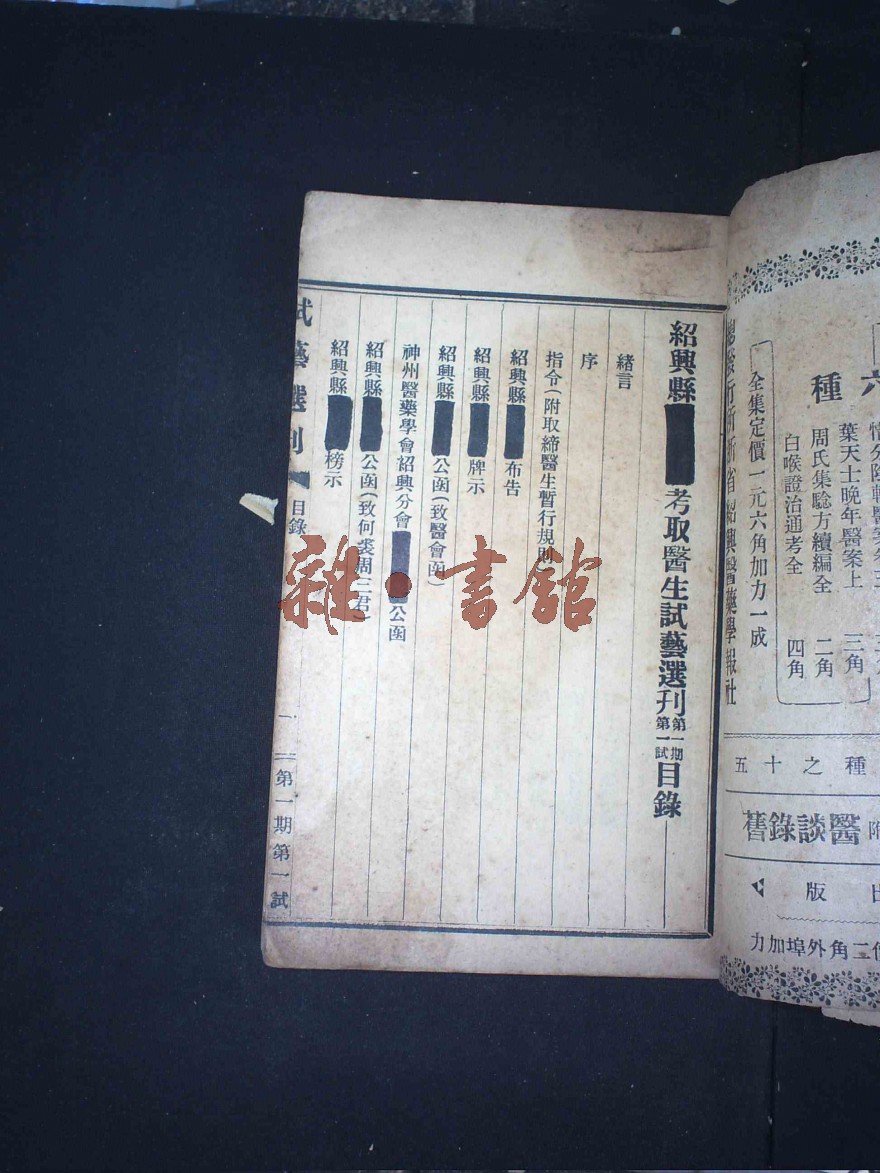 紹興縣考取醫生試藝選刊第一期第一試目錄
緒言
序
指令(附取締醫生暫行規則
紹興縣布告
紹興縣牌示
紹興縣公函(致醫會函)
神州醫藥學會紹興分會公函
紹興縣公函(致何裘周三君)
紹興縣榜示
試藝選刊
目錄
一
第一期第一試
雜·書館
六種
葉天士晚年醫案上 三角
周氏集驗方續編全 二角
白喉證治通考全 四角
全集定價一元六角加力一成
總發行所浙省紹興醫藥學報社
種之十五
醫談錄舊
出版
二角外埠加力